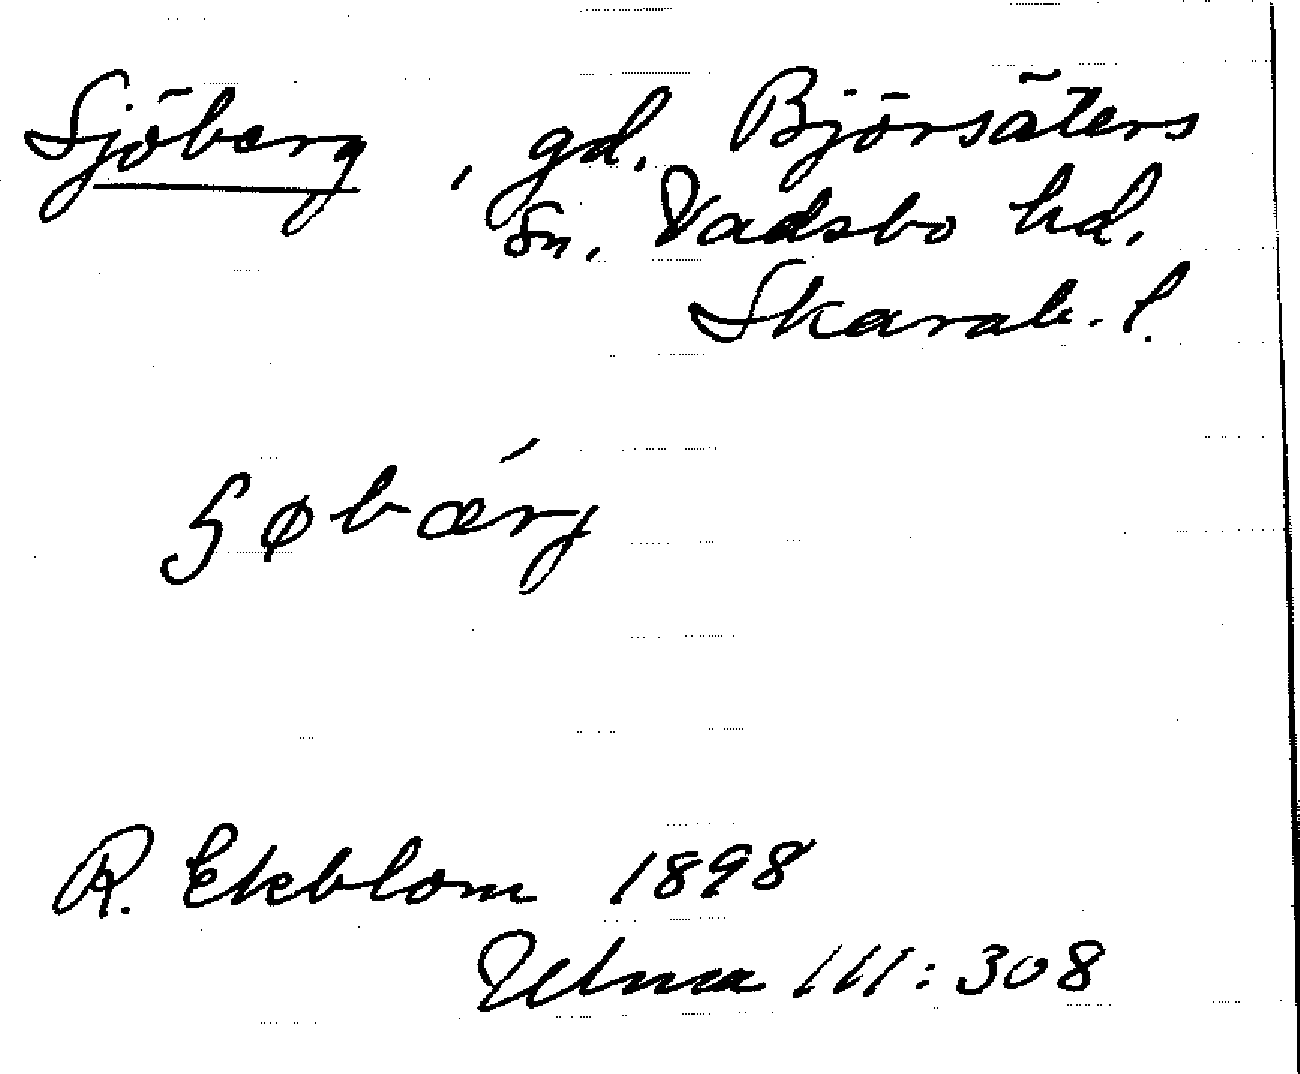 Sjöberg, gd. Björsäters
sn. Vadsbo hd.
Skarab. l.
R. Ekblom 1898
Ulma 111:308